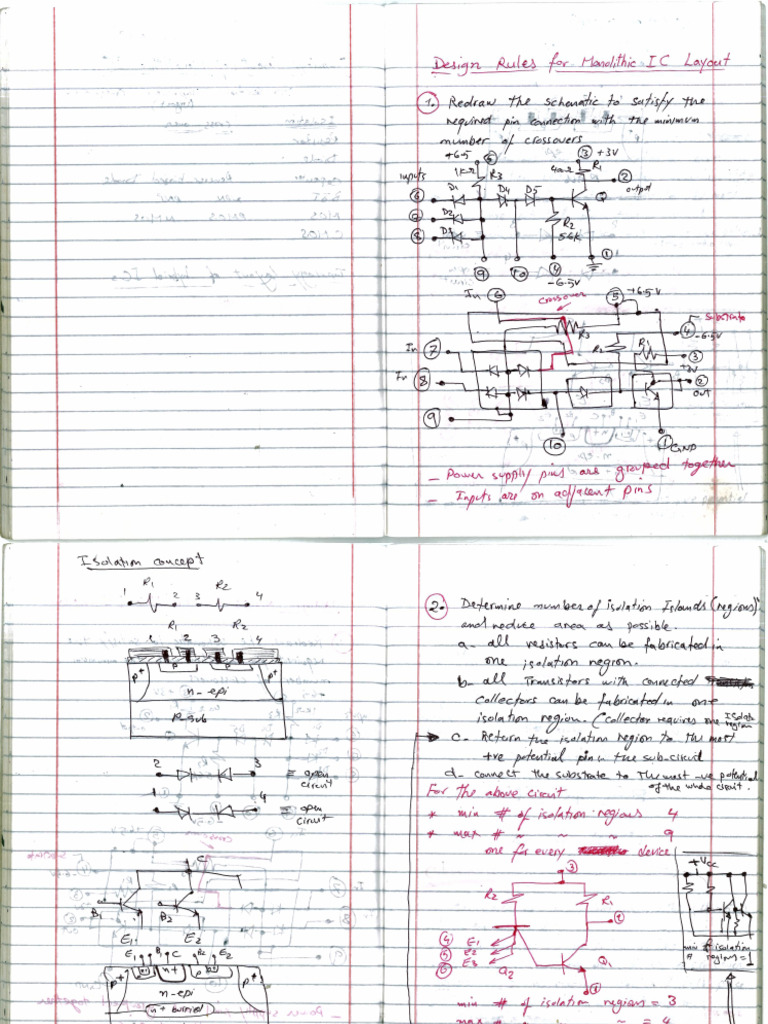 Design Rules for Monolithic IC Layout
1. Redraw the schematic to satisfy the
required pin connection with the minimum
number of crossovers
+6.5 5 3 +3V
inputs 1KΩ R3 400Ω R1
6 D1 D4 D5 2 output
Q
9 D2
8 D3 R2
56K
9 10 4 1
-6.5V
In 6 crossover 5 +6.5V
Substrate
4 -6.5V
R3
In 7 R2 R1 3
+3V
In 8 2
out
9
10 1 GND
- Power supply pins are grouped together
- Inputs are on adjacent pins
Isolation concept
R1 R2
1 2 3 4
R1 R2
1 2 3 4
P+ P P P+
n-epi
P-sub
2 3 = open circuit
1 4 = open circuit
C
B1 B2
E1 E2
E1 B1 C B2 E2
P+ n+ P P+
n-epi
n+ burried
2. Determine number of isolation Islands (regions)
and reduce area as possible.
a- all resistors can be fabricated in
one isolation region.
b- all Transistors with connected
collectors can be fabricated in one
isolation region. (collector requires one Isolate region
c- Return the isolation region to the most
+ve potential pin in the sub-circuit
d- connect the substrate to the most -ve potential
of the whole circuit.
For the above circuit
* min # of isolation regions 4
* max # ~ ~ ~ 9
one for every device
3
R2 R1
4 E1
5 E2
6 E3
Q2 Q1
1
+Vcc
min # of isolation
regions = 1
min # of isolation regions = 3
max # ~ ~ ~ = 4